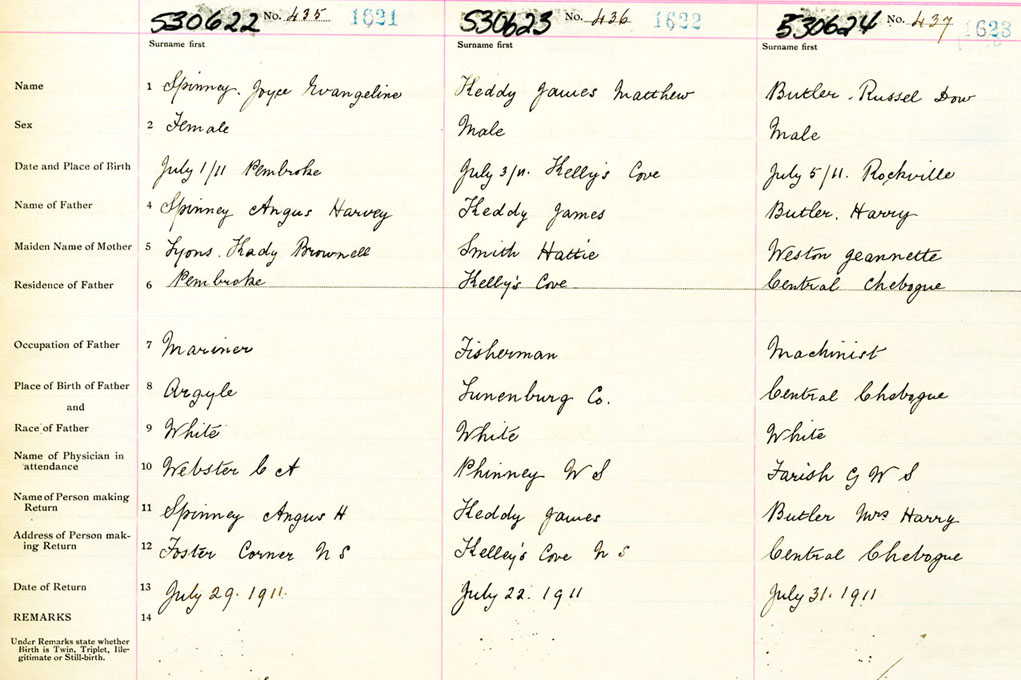 530622 No. 435 1621 530623 No. 436 1622 530624 No. 437 1623
Surname first Surname first Surname first
Name 1 Spinney. Joyce Evangeline Keddy James Matthew Butler. Russel Dow
Sex 2 Female Male Male
Date and Place of Birth July 1/11 Pembroke July 3/11. Kelly's Cove July 5/11. Rockville
Name of Father 4 Spinney Angus Harvey Keddy James Butler. Harry
Maiden Name of Mother 5 Lyons. Kady Brownell Smith Hattie Weston Jeannette
Residence of Father 6 Pembroke Kelly's Cove Central Chebogue
Occupation of Father 7 Mariner Fisherman Machinist
Place of Birth of Father 8 Argyle Lunenburg Co. Central Chebogue
and
Race of Father 9 White White White
Name of Physician in
attendance 10 Webster C A Phinney W S Farish G W S
Name of Person making
Return 11 Spinney Angus H Keddy James Butler Mrs Harry
Address of Person mak-
ing Return 12 Foster Corner N S Kelley's Cove N S Central Chebogue
Date of Return 13 July 29. 1911. July 22. 1911 July 31. 1911
REMARKS 14
Under Remarks state whether
Birth is Twin, Triplet, Ille-
gitimate or Still-birth.